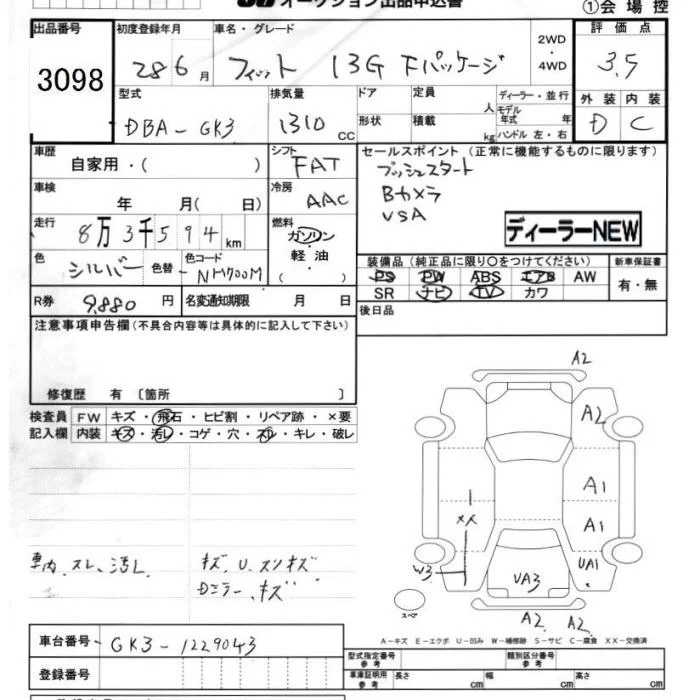 オークション出品申込書
①会場控
出品番号
3098
初度登録年月
28 6月
車名・グレード
フィット 13G Fパッケージ
2WD
・
4WD
評価点
3.5
外装 内装
D C
型式
DBA-GK3
排気量
1310 cc
ドア
形状
定員 人
積載 kg
ディーラー・並行
モデル年式 年
ハンドル 左・右
車歴
自家用・( )
シフト
FAT
セールスポイント (正常に機能するものに限ります)
プッシュスタート
Bカメラ
VSA
ディーラーNEW
車検
年 月( 日)
冷房
AAC
走行
8万3千594km
燃料
ガソリン
軽・油
( )
色
シルバー
色替
色コード
NH700M
装備品 (純正品に限り○をつけてください)
PS PW ABS エアB AW
SR ナビ TV カワ
新車保証書
有・無
R券 9,880 円
名変通知期限 月 日
後日品
注意事項申告欄 (不具合内容等は具体的に記入して下さい)
修復歴 有 〔箇所 〕
検査員記入欄
FW キズ・飛石・ヒビ割・リペア跡・×要
内装 キズ・汚レ・コゲ・穴・スレ・キレ・破レ
車内 スレ、汚レ
キズ、U、スリキズ
Dミラー、キズ
A2
A2
A1
A1
XX
W3
UA3
UA1
A2
A2
スペア
A-キズ E-エクボ U-凹み W-補修跡 S-サビ C-腐食 XX-交換済
車台番号 GK3-1229043
登録番号
型式指定番号
参考
類別区分番号
参考
車庫証明用
参考
長さ cm
幅 cm
高さ cm